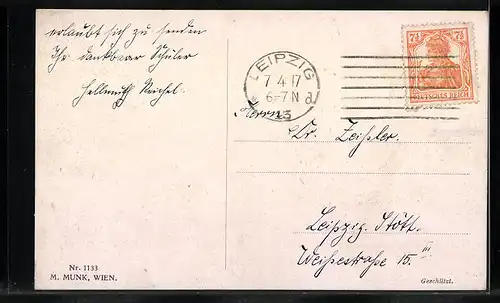 erlaubt sich zu senden
Ihr dankbarer Schüler
Hellmuth Reichel.
Nr. 1133
M. MUNK, WIEN.
LEIPZIG
7 4 17
6-7 N
13
7½ 7½
DEUTSCHES REICH
Herrn
Dr. Zeißler.
Leipzig-Stött.
Weißestraße 15. III
Geschützt.